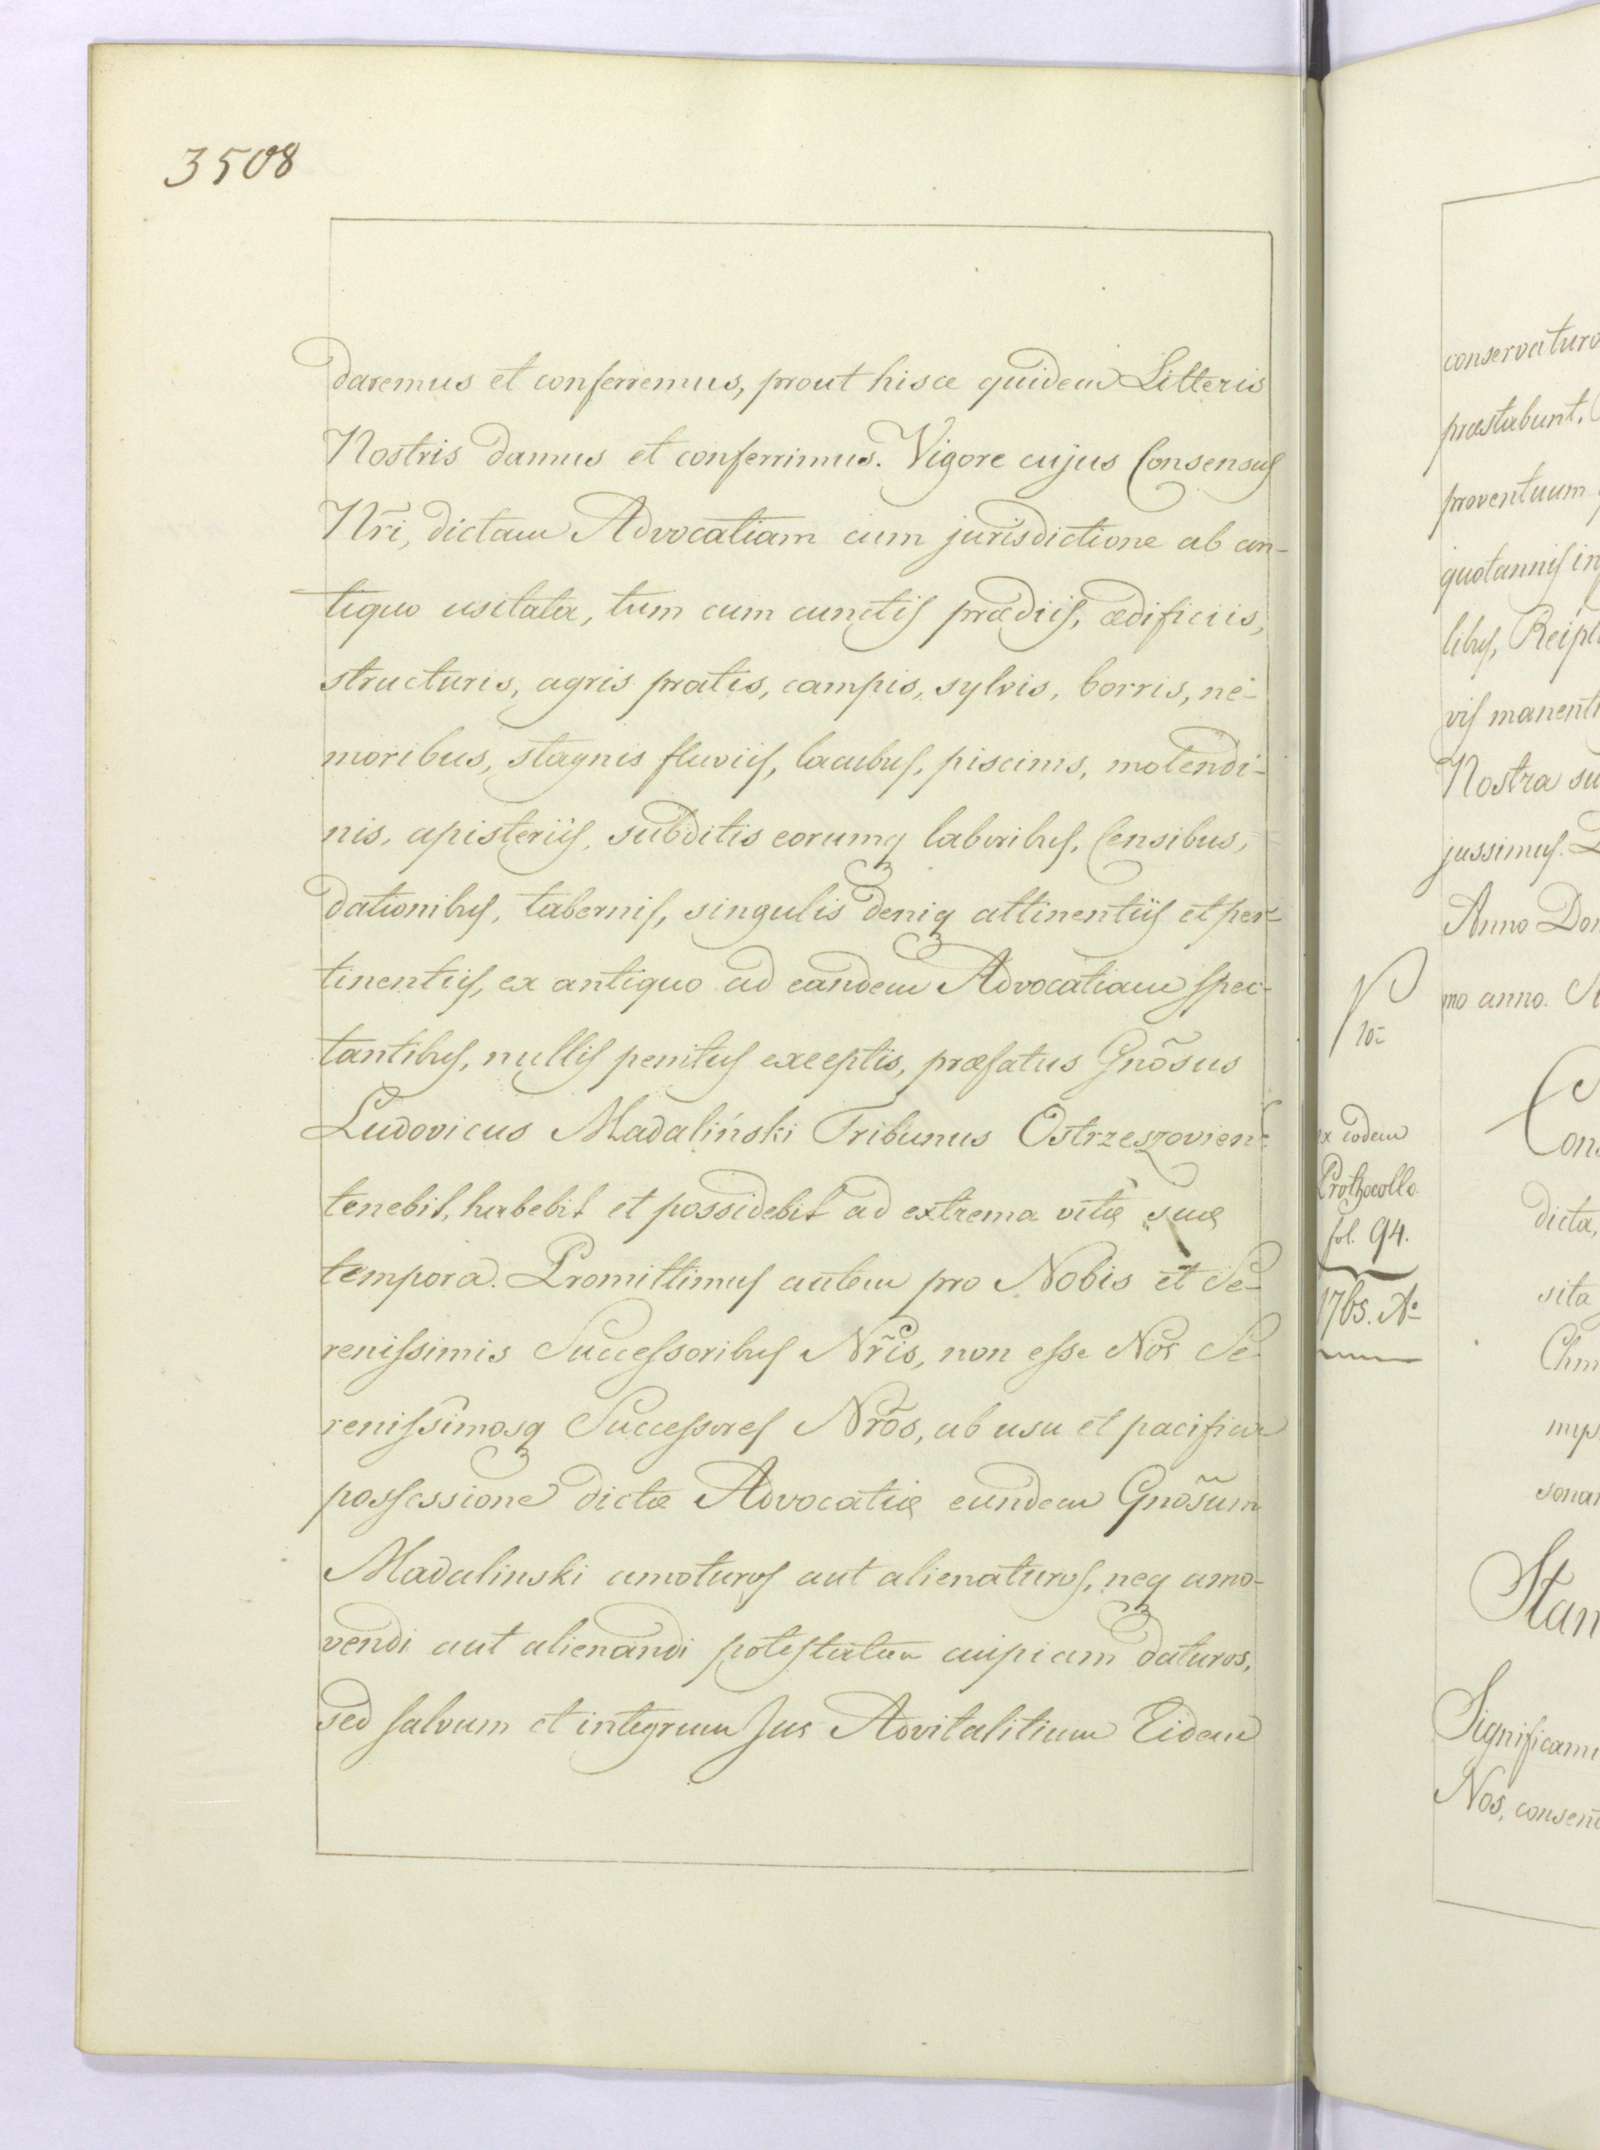 3508
daremus et conferremus, prout hisce quidem Litteris
Nostris damus et conferrimus. Vigore cujus Consensus
Nr̃i, dictam Advocatiam cum jurisdictione ab an-
tiquo usitata, tum cum cunctis prædiis, ædificiis,
structuris, agris pratis, campis, sylvis, borris, ne-
moribus, stagnis fluviis, lacubus, piscinis, molendi-
nis, apisteriis, subditis eorumq laboribus, Censibus,
dationibus, tabernis, singulis deniq attinentiis et per-
tinentiis, ex antiquo ad eandem Advocatiam spec-
tantibus, nullis penitus exceptis, præfatus Gnõsus
Ludovicus Madaliński Tribunus Ostrzeszovien:
tenebit, habebit et possidebit ad extrema vitæ suæ
tempora. Promittimus autem pro Nobis et Se-
renissimis Successoribus Nr̃is, non esse Nos Se-
renissimosq Successores Nrõs, ab usu et pacifica
possessione dictæ Advocatiæ eundem Gnõsum
Madalinski amoturos aut alienaturos, neq amo-
vendi aut alienandi potestatem cuipiam daturos,
sed salvum et integrum Jus Advitalitium Eidem
conservaturo
præstabunt.
proventuum
quotannis in
libus, Reipu
vis manenti
Nostra su
jussimus. D
Anno Dom
mo anno. A
ex eodem
Prothocollo
fol. 94.
1765. Ao
Cons
dicta,
sita
Chm
myś
sonar
Stan
Significam
Nos, consen